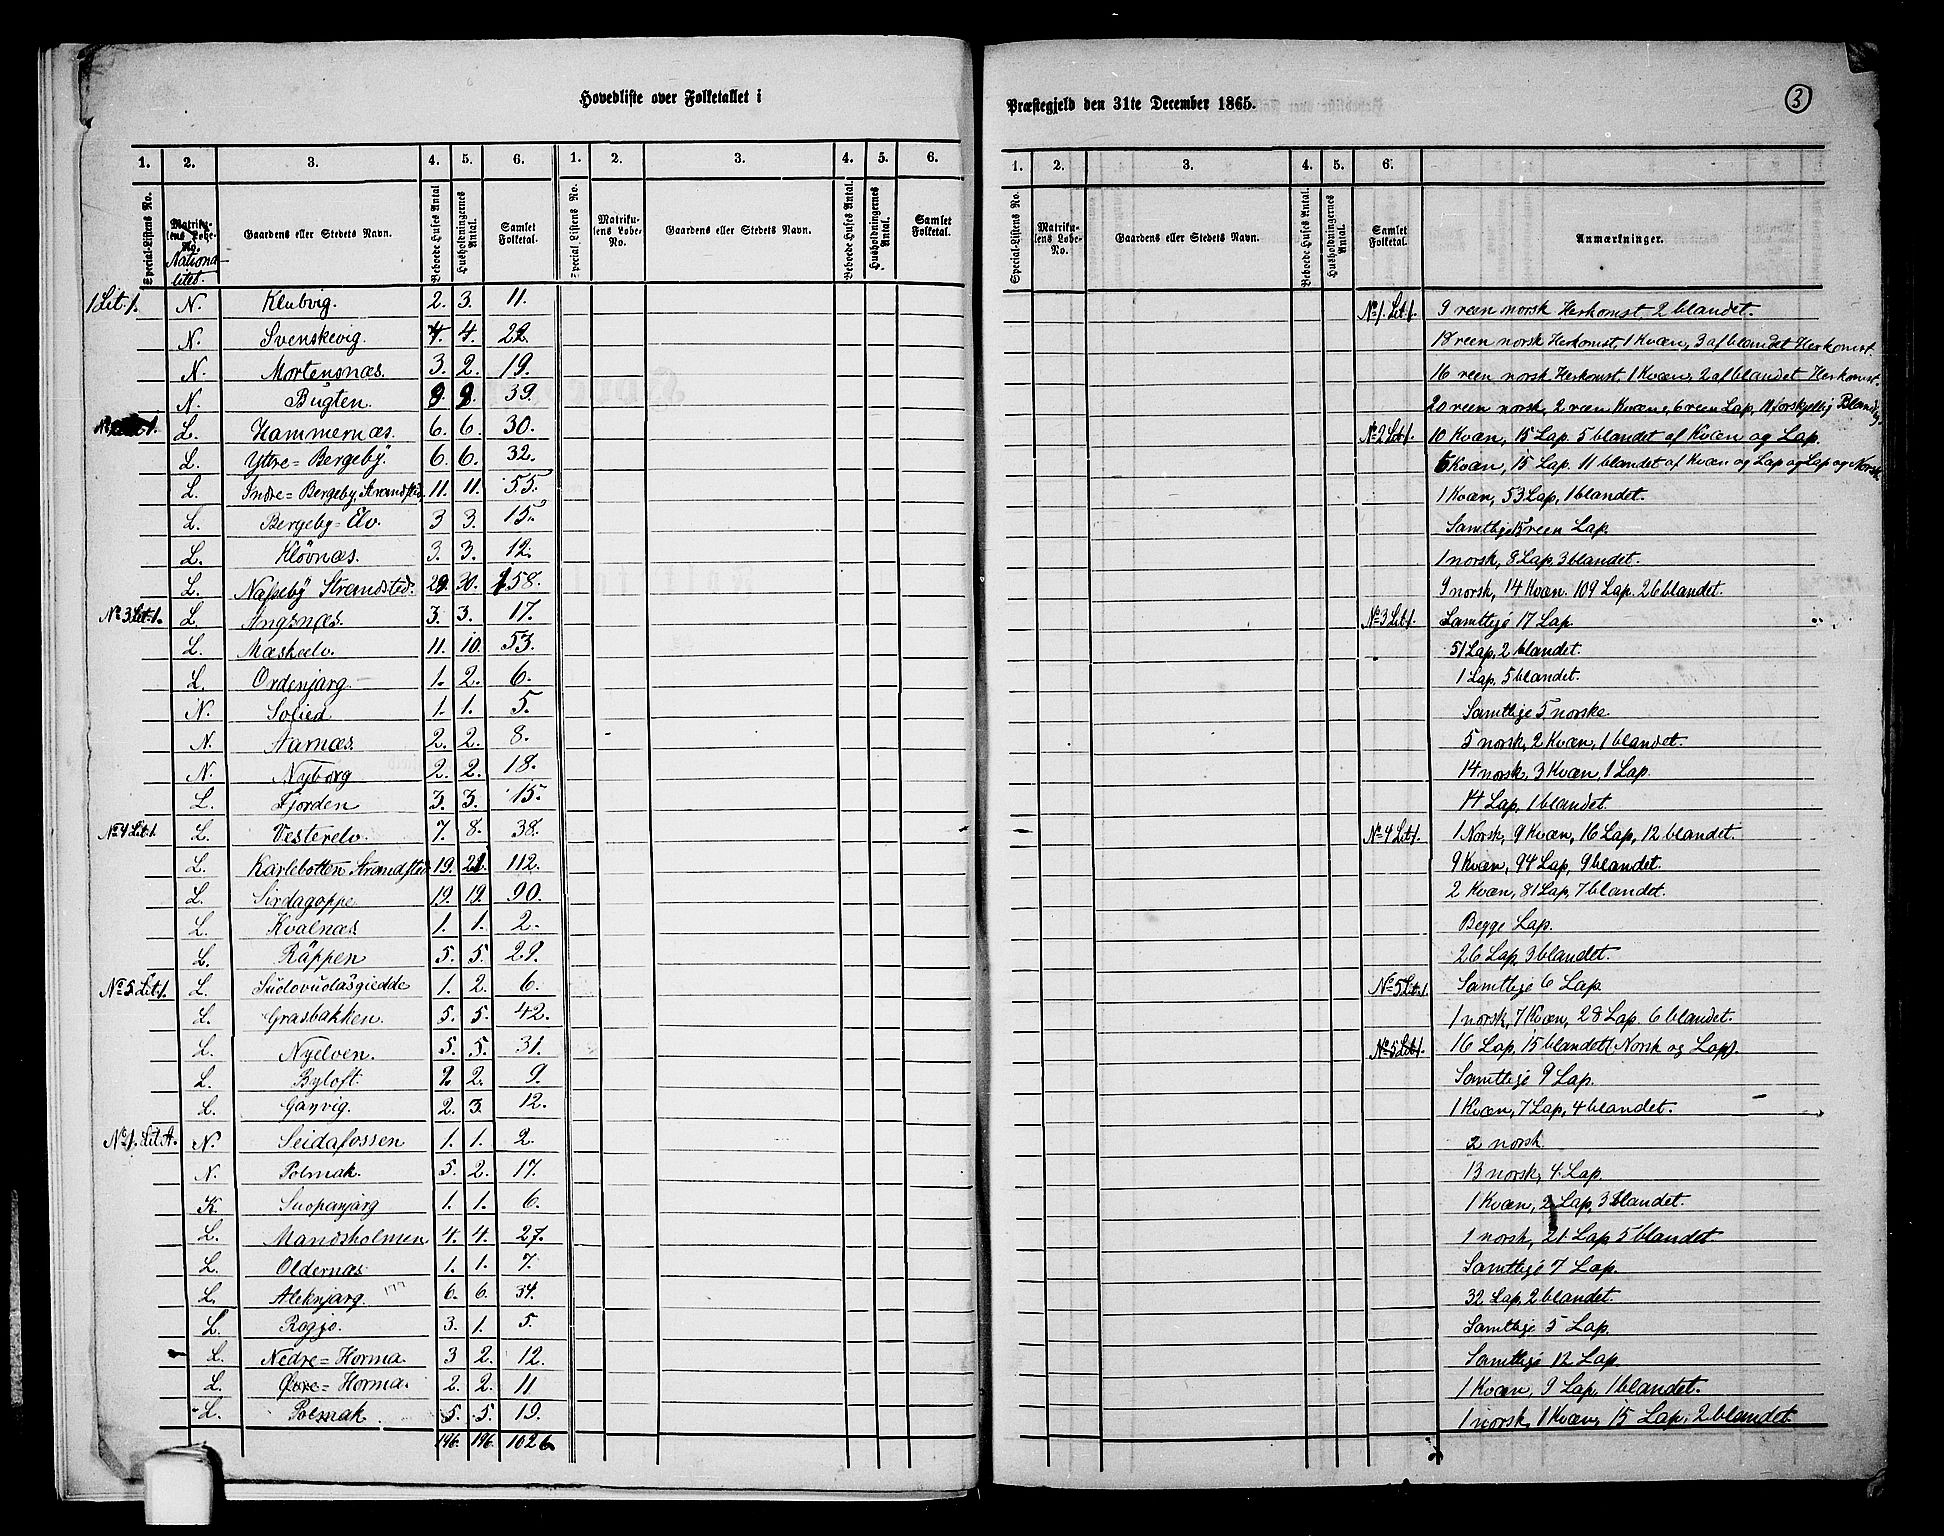 Hovedliste over Folketallet i
Præstegjeld den 31te December 1865.
3
1. 2. 3. 4. 5. 6. 1. 2. 3. 4. 5. 6.
Special-Listens No. Matrikulens Løbe-No. Nationalitet. Gaardens eller Stedets Navn. Beboede Huses Antal Husholdningernes Antal. Samlet Folketal. Special Listens No. Matrikulens Løbe-No. Gaardens eller Stedets Navn. Beboede Huses Antal. Husholdningernes Antal. Samlet Folketal.
1 Lit. 1. N. Klubvig. 2. 3. 11.
N. Svenskevig. 4. 4. 22.
N. Mortensnæs. 3. 2. 19.
N. Bugten. 9. 9. 39.
L. Hammernæs. 6. 6. 30.
L. Yttre=Bergeby. 6. 6. 32.
L. Indre=Bergeby, Strandsted. 11. 11. 55.
L. Bergeby=Elv. 3 3. 15.
L. Kløvnæs. 3. 3. 12.
L. Næsseby Strandsted. 29. 30. 158.
No 3 Lit. 1. L. Angsnæs. 3. 3. 17.
L. Mæskelv. 11. 10. 53.
L. Ordenjarg. 1. 2. 6.
N. Solied 1. 1. 5.
N. Aarnæs. 2. 2. 8.
N. Nyborg 2. 2. 18.
L. Fjorden 3. 3. 15.
No 4 Lit. 1. L. Vesterelv. 7. 8. 38.
L. Karlebotten Strandsted 19. 21. 112.
L. Sirdagoppe. 19. 19. 90.
L. Kvalnæs 1. 1. 2.
L. Räppen 5. 5. 29.
No 5 Lit. 1. L. Sudovudasgiedde 1. 2. 6.
L. Grasbakken. 5. 5. 42.
L. Nyelven. 5. 5. 31.
L. Byloft. 2. 2. 9.
L. Ganvig. 2. 3. 12.
No 1. Lit. A. N. Seidafossen 1. 1. 2.
N. Polmak. 5. 2. 17.
K. Suopanjarg 1. 1. 6.
L. Mandsholmen 4. 4. 27.
L. Oldernæs. 1. 1. 7.
L. Aleknjarg. 6. 6. 34.
L. Roggo. 3. 1. 5.
L. Nedre=Horma. 3 2. 12.
L. Øvre=Horma. 2. 2. 11
L. Polmak. 5. 5. 19.
196. 196. 1026.
1. 2. 3. 4. 5. 6.
Special-Listens No. Matrikulens Løbe-No. Gaardens eller Stedets Navn. Beboede Huses Antal. Husholdningernes Antal. Samlet Folketal. Anmærkninger.
No 1. Lit. 1. 9 reen norsk Herkomst, 2 blandet.
18 reen norsk Herkomst, 1 Kvæn, 3 af blandet Herkomst.
16 reen norsk Herkomst, 1 Kvæn, 2 af blandet Herkomst.
20 reen norsk, 2 reen Kvæn, 6 reen Lap, 11 forskjellig Blanding.
No 2 Lit. 1. 10 Kvæn, 15 Lap. 5 blandet af Kvæn og Lap.
6 Kvæn, 15 Lap. 11 blandet af Kvæn og Lap og Lap og Norsk
1 Kvæn, 53 Lap, 1 blandet.
Samtlige 15 reen Lap.
1 norsk, 8 Lap, 3 blandet.
9 norsk, 14 Kvæn. 109 Lap. 26 blandet.
No 3 Lit. 1. Samtlige 17 Lap.
51 Lap, 2 blandet.
1 Lap, 5 blandet.
Samtlige 5 norske.
5 norsk, 2 Kvæn, 1 blandet.
14 norsk, 3 Kvæn, 1 Lap.
14 Lap, 1 blandet.
No 4 Lit. 1. 1 Norsk, 9 Kvæn, 16 Lap, 12 blandet.
9 Kvæn, 94 Lap, 9 blandet.
2 Kvæn, 81 Lap, 7 blandet.
Begge Lap.
26 Lap, 3 blandet.
No 5 Lit. 1. Samtlige 6 Lap.
1 norsk, 7 Kvæn, 28 Lap. 6 blandet.
No 5 Lit. 1. 16 Lap, 15 blandet (Norsk og Lap).
Samtlige 9 Lap.
1 Kvæn, 7 Lap, 4 blandet.
2 norsk.
13 norsk, 4 Lap.
1 Kvæn, 2 Lap, 3 blandet.
1 norsk, 21 Lap 5 blandet.
Samtlige 7 Lap.
32 Lap, 2 blandet.
Samtlige 5 Lap.
Samtlige 12 Lap.
1 Kvæn, 9 Lap, 1 blandet.
1 norsk, 1 Kvæn, 15 Lap, 2 blandet.